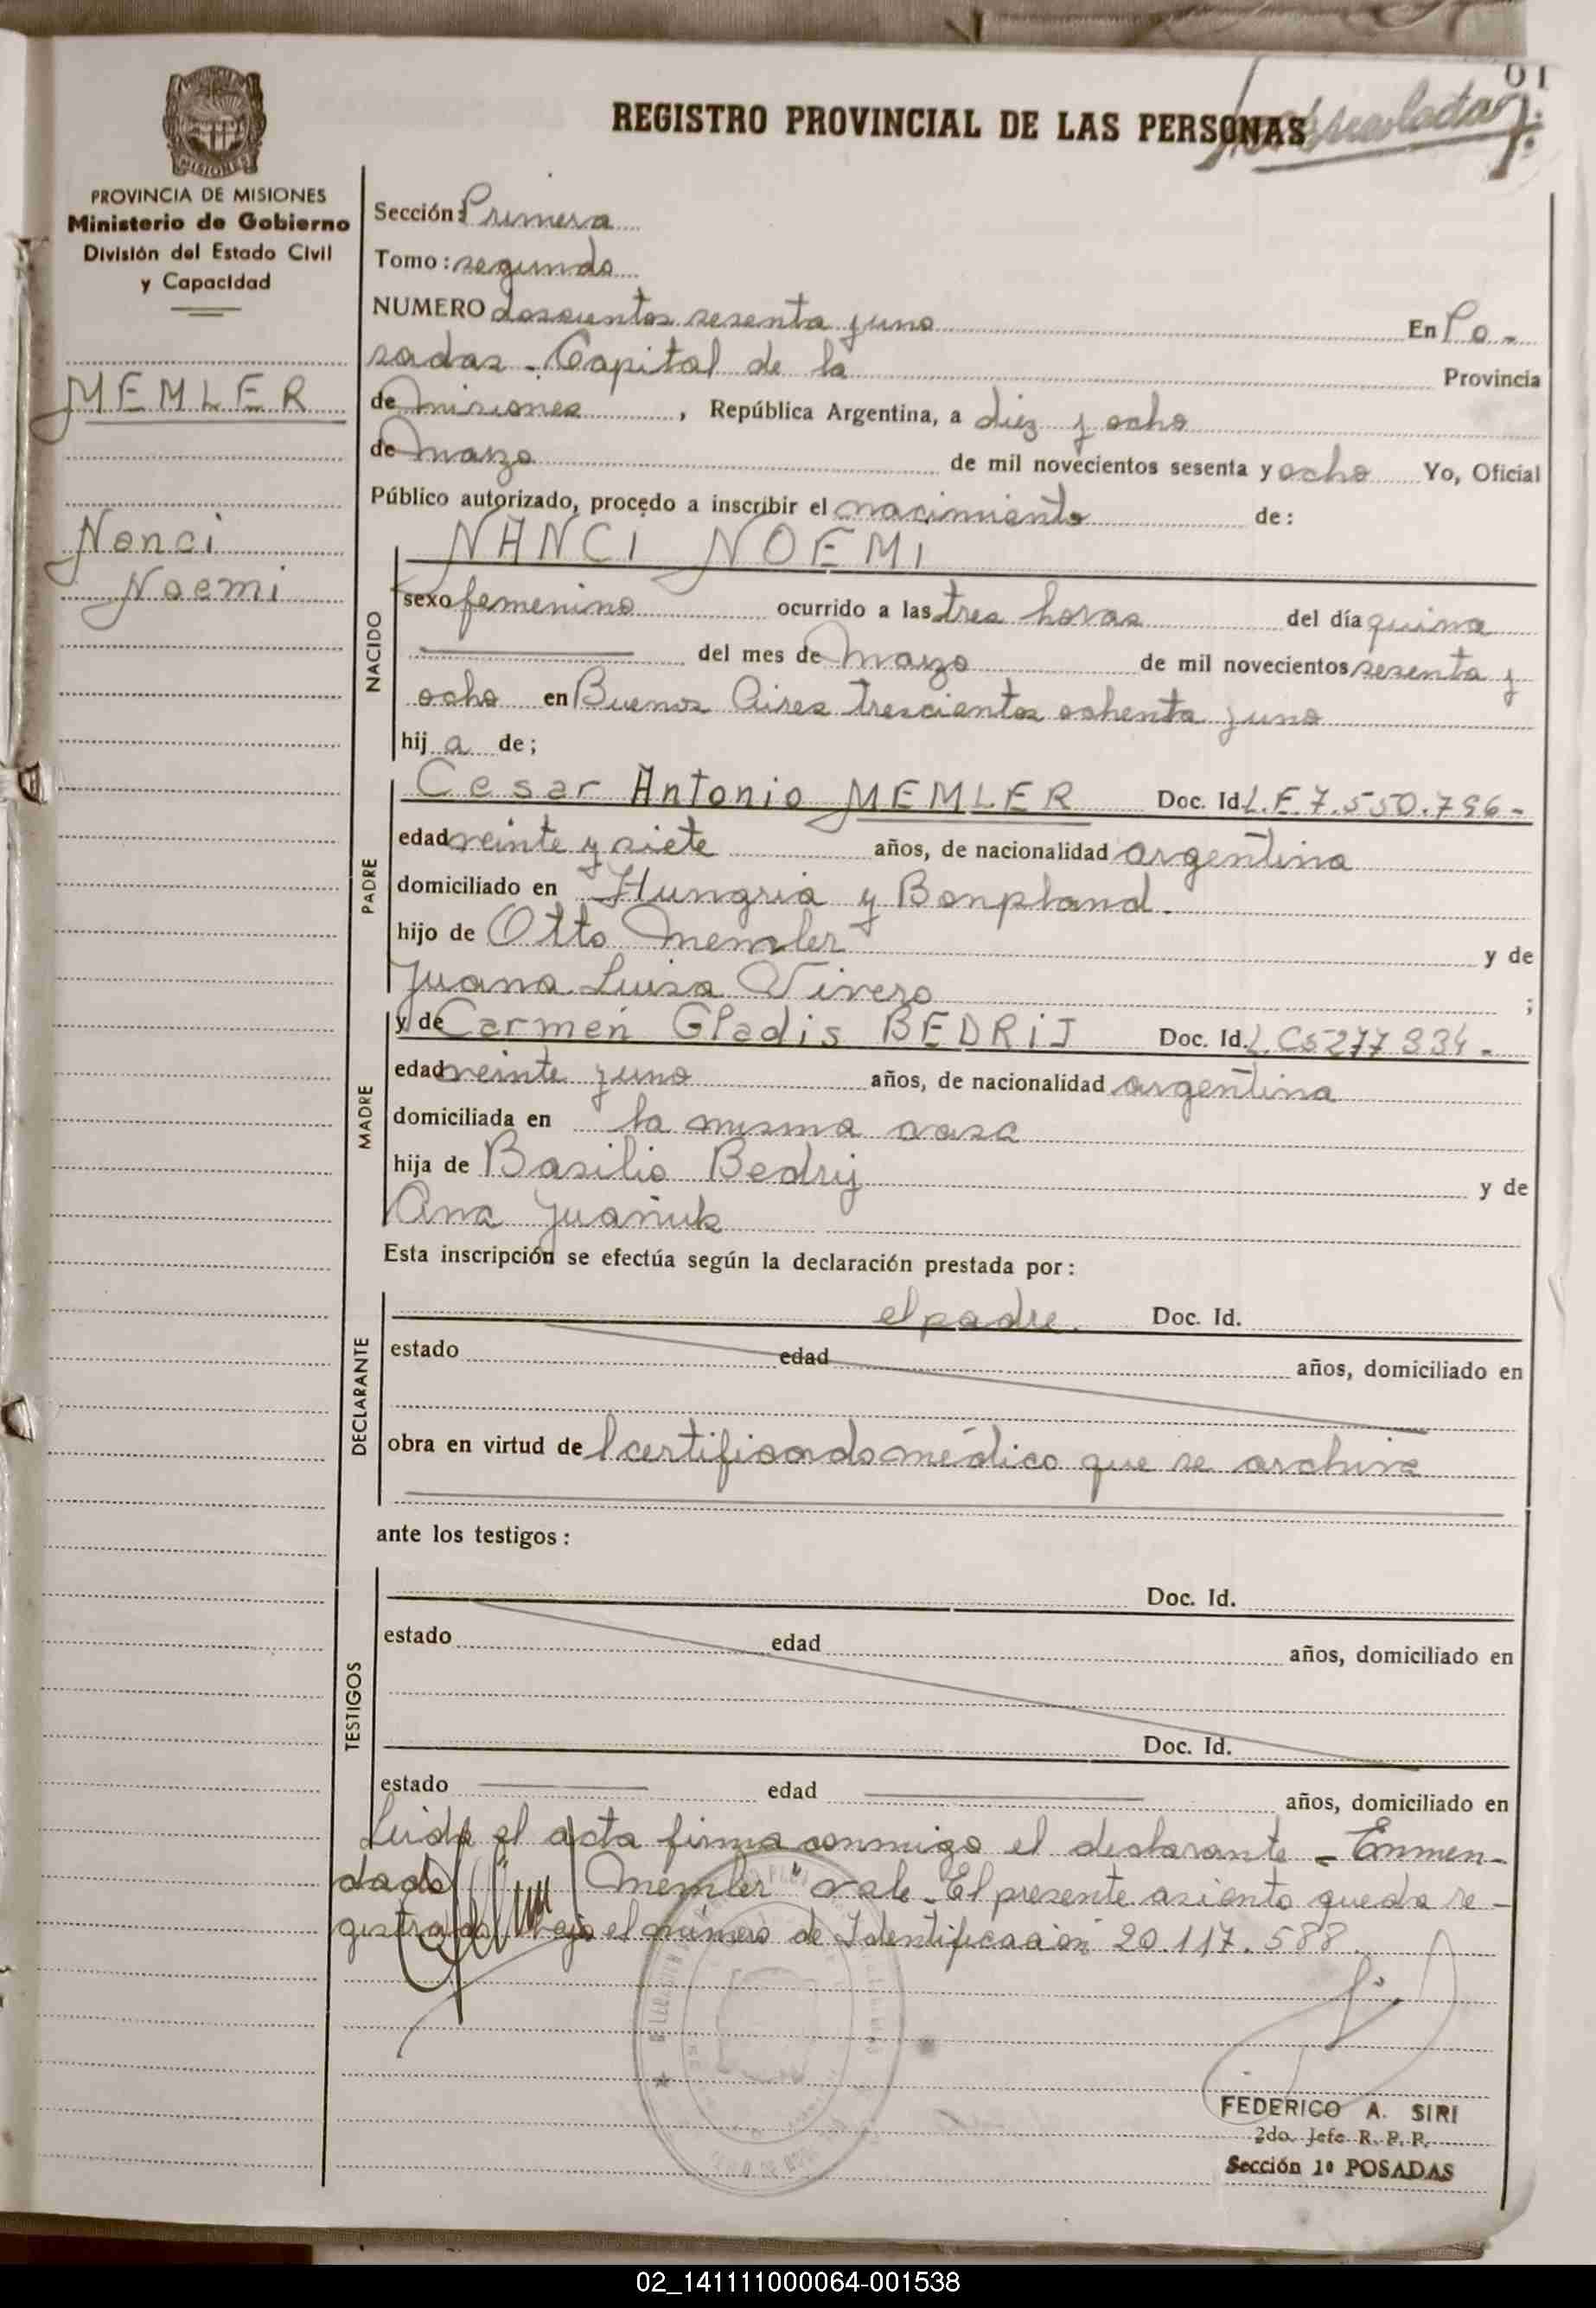 01
REGISTRO PROVINCIAL DE LAS PERSONAS
MISIONES
PROVINCIA DE MISIONES
Ministerio de Gobierno
División del Estado Civil
y Capacidad
MEMLER
Nanci
Noemi
Sección: Primera
Tomo: segundo
NUMERO doscientos sesenta y uno En Po-
sadas - Capital de la Provincia
de Misiones, República Argentina, a diez y ocho
de Marzo de mil novecientos sesenta y ocho Yo, Oficial
Público autorizado, procedo a inscribir el nacimiento de:
NACIDO
NANCI NOEMI
sexo femenino ocurrido a las tres horas del día quince
del mes de Marzo de mil novecientos sesenta y
ocho en Buenos Aires trescientos ochenta y uno
hij a de;
PADRE
Cesar Antonio MEMLER Doc. Id. L.E 7.550.796-
edad veinte y siete años, de nacionalidad argentina
domiciliado en Hungria y Bonpland.
hijo de Otto Memler y de
Juana Luisa Vivero ;
MADRE
y de Carmen Gladis BEDRIJ Doc. Id. L.C5277334-
edad veinte y uno años, de nacionalidad argentina
domiciliada en la misma casa
hija de Basilio Bedrij y de
Ana Juañuk
Esta inscripción se efectúa según la declaración prestada por:
DECLARANTE
el padre. Doc. Id.
estado edad años, domiciliado en
obra en virtud de l certificado médico que se archiva
ante los testigos:
TESTIGOS
Doc. Id.
estado edad años, domiciliado en
Doc. Id.
estado edad años, domiciliado en
Leida el acta firma conmigo el declarante - Enmen-
dado Memler vale - El presente asiento queda re-
gistrado bajo el número de Identificación 20.117.588.
FEDERICO A. SIRI
2do. Jefe R. P. P.
Sección 1º POSADAS
02_141111000064-001538